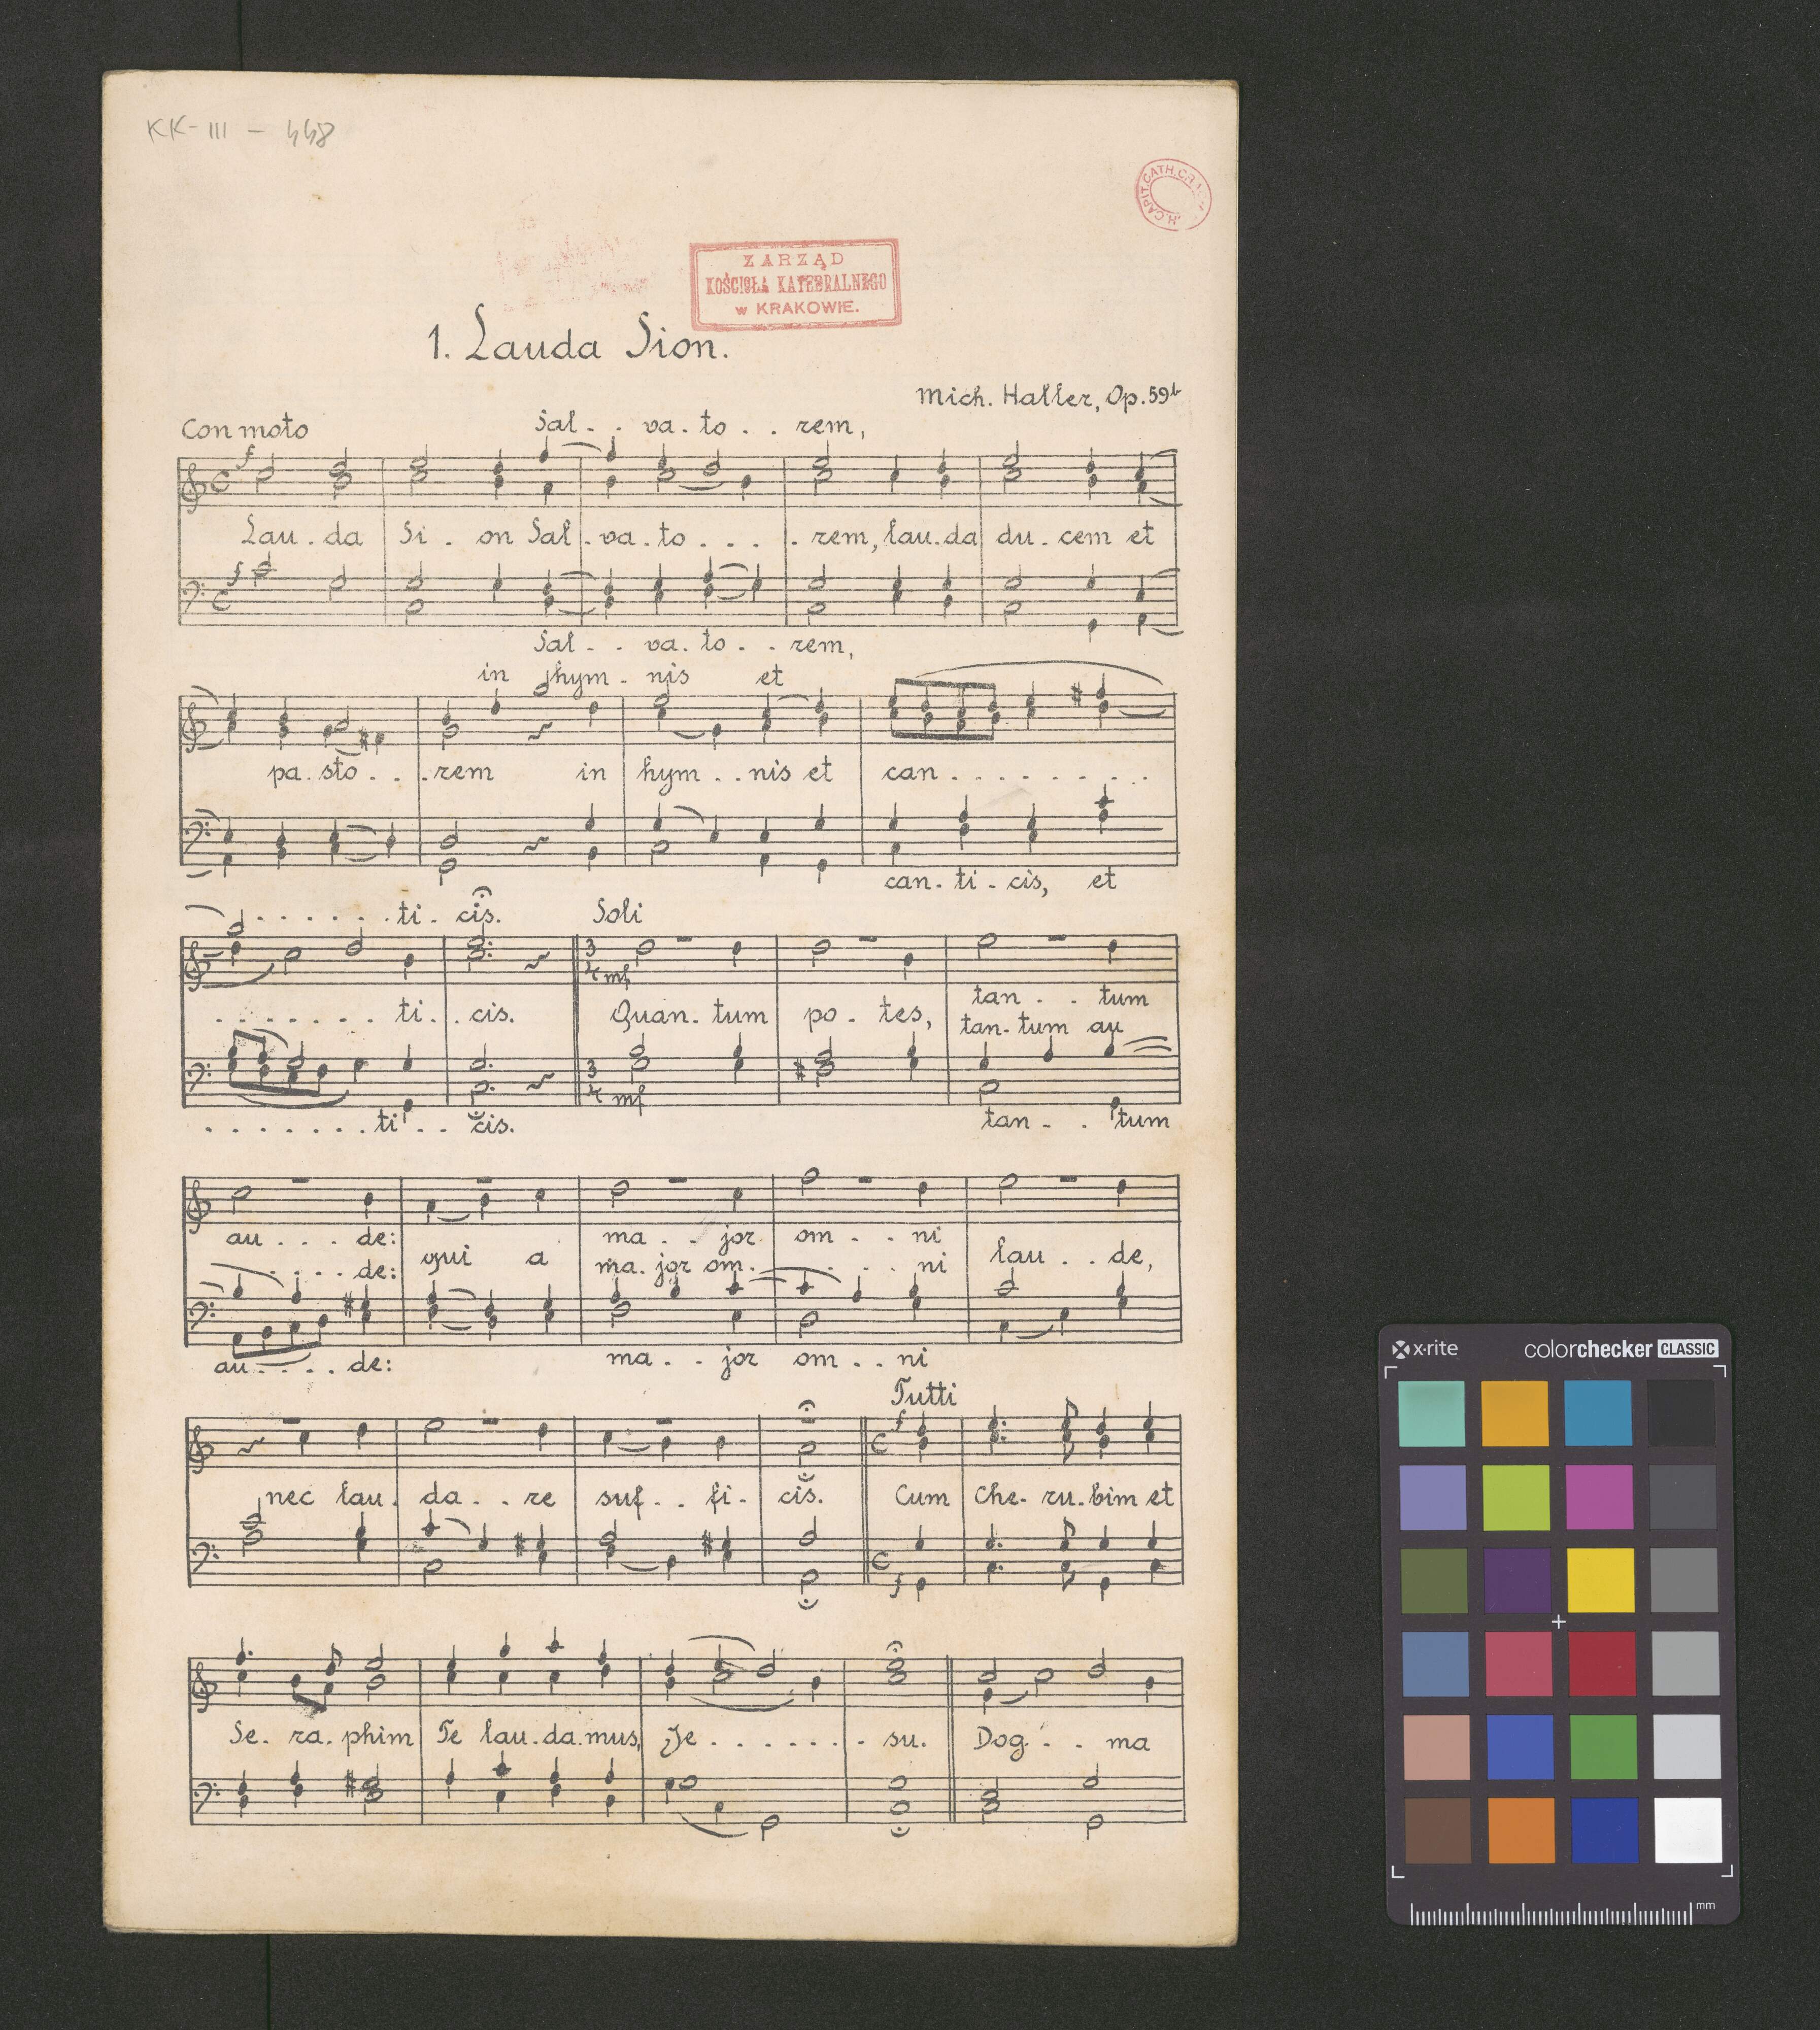 KK-III - 448
H.CAPIT.CATH.
ZARZĄD
KOŚCIOŁA KATEDRALNEGO
w KRAKOWIE.
1. Lauda Sion.
Mich. Haller, Op. 59b
Con moto Sal - - va - to - - rem,
f
Lau - da Si - on Sal - va - to - - - - rem, lau - da du - cem et
f
Sal - - va - to - - rem,
in hym - nis et
pa - sto - - - rem in hym - - nis et can - - - - - - - -
can - ti - cis, et
- - - - - - ti - cis. Soli
3 4 mf
- - - - - - - ti - - cis. Quan - tum po - tes, tan - - tum
tan - tum au
3 4 mf
- - - - - - - ti - - cis. tan - - tum
au - - - de: ma - - jor om - - ni
- - - - de: qui a ma - jor om - - - - ni lau - - de,
au - - - - de: ma - - jor om - - ni
Tutti
f
nec lau - da - - re suf - - fi - cis. Cum Che - ru - bim et
f
Se - ra - phim Te lau - da - mus, Je - - - - - - - su. Dog - - ma
x·rite colorchecker CLASSIC
mm